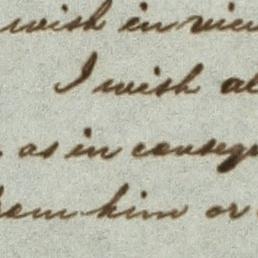 wish in view
I wish al
as in conseq
from him or